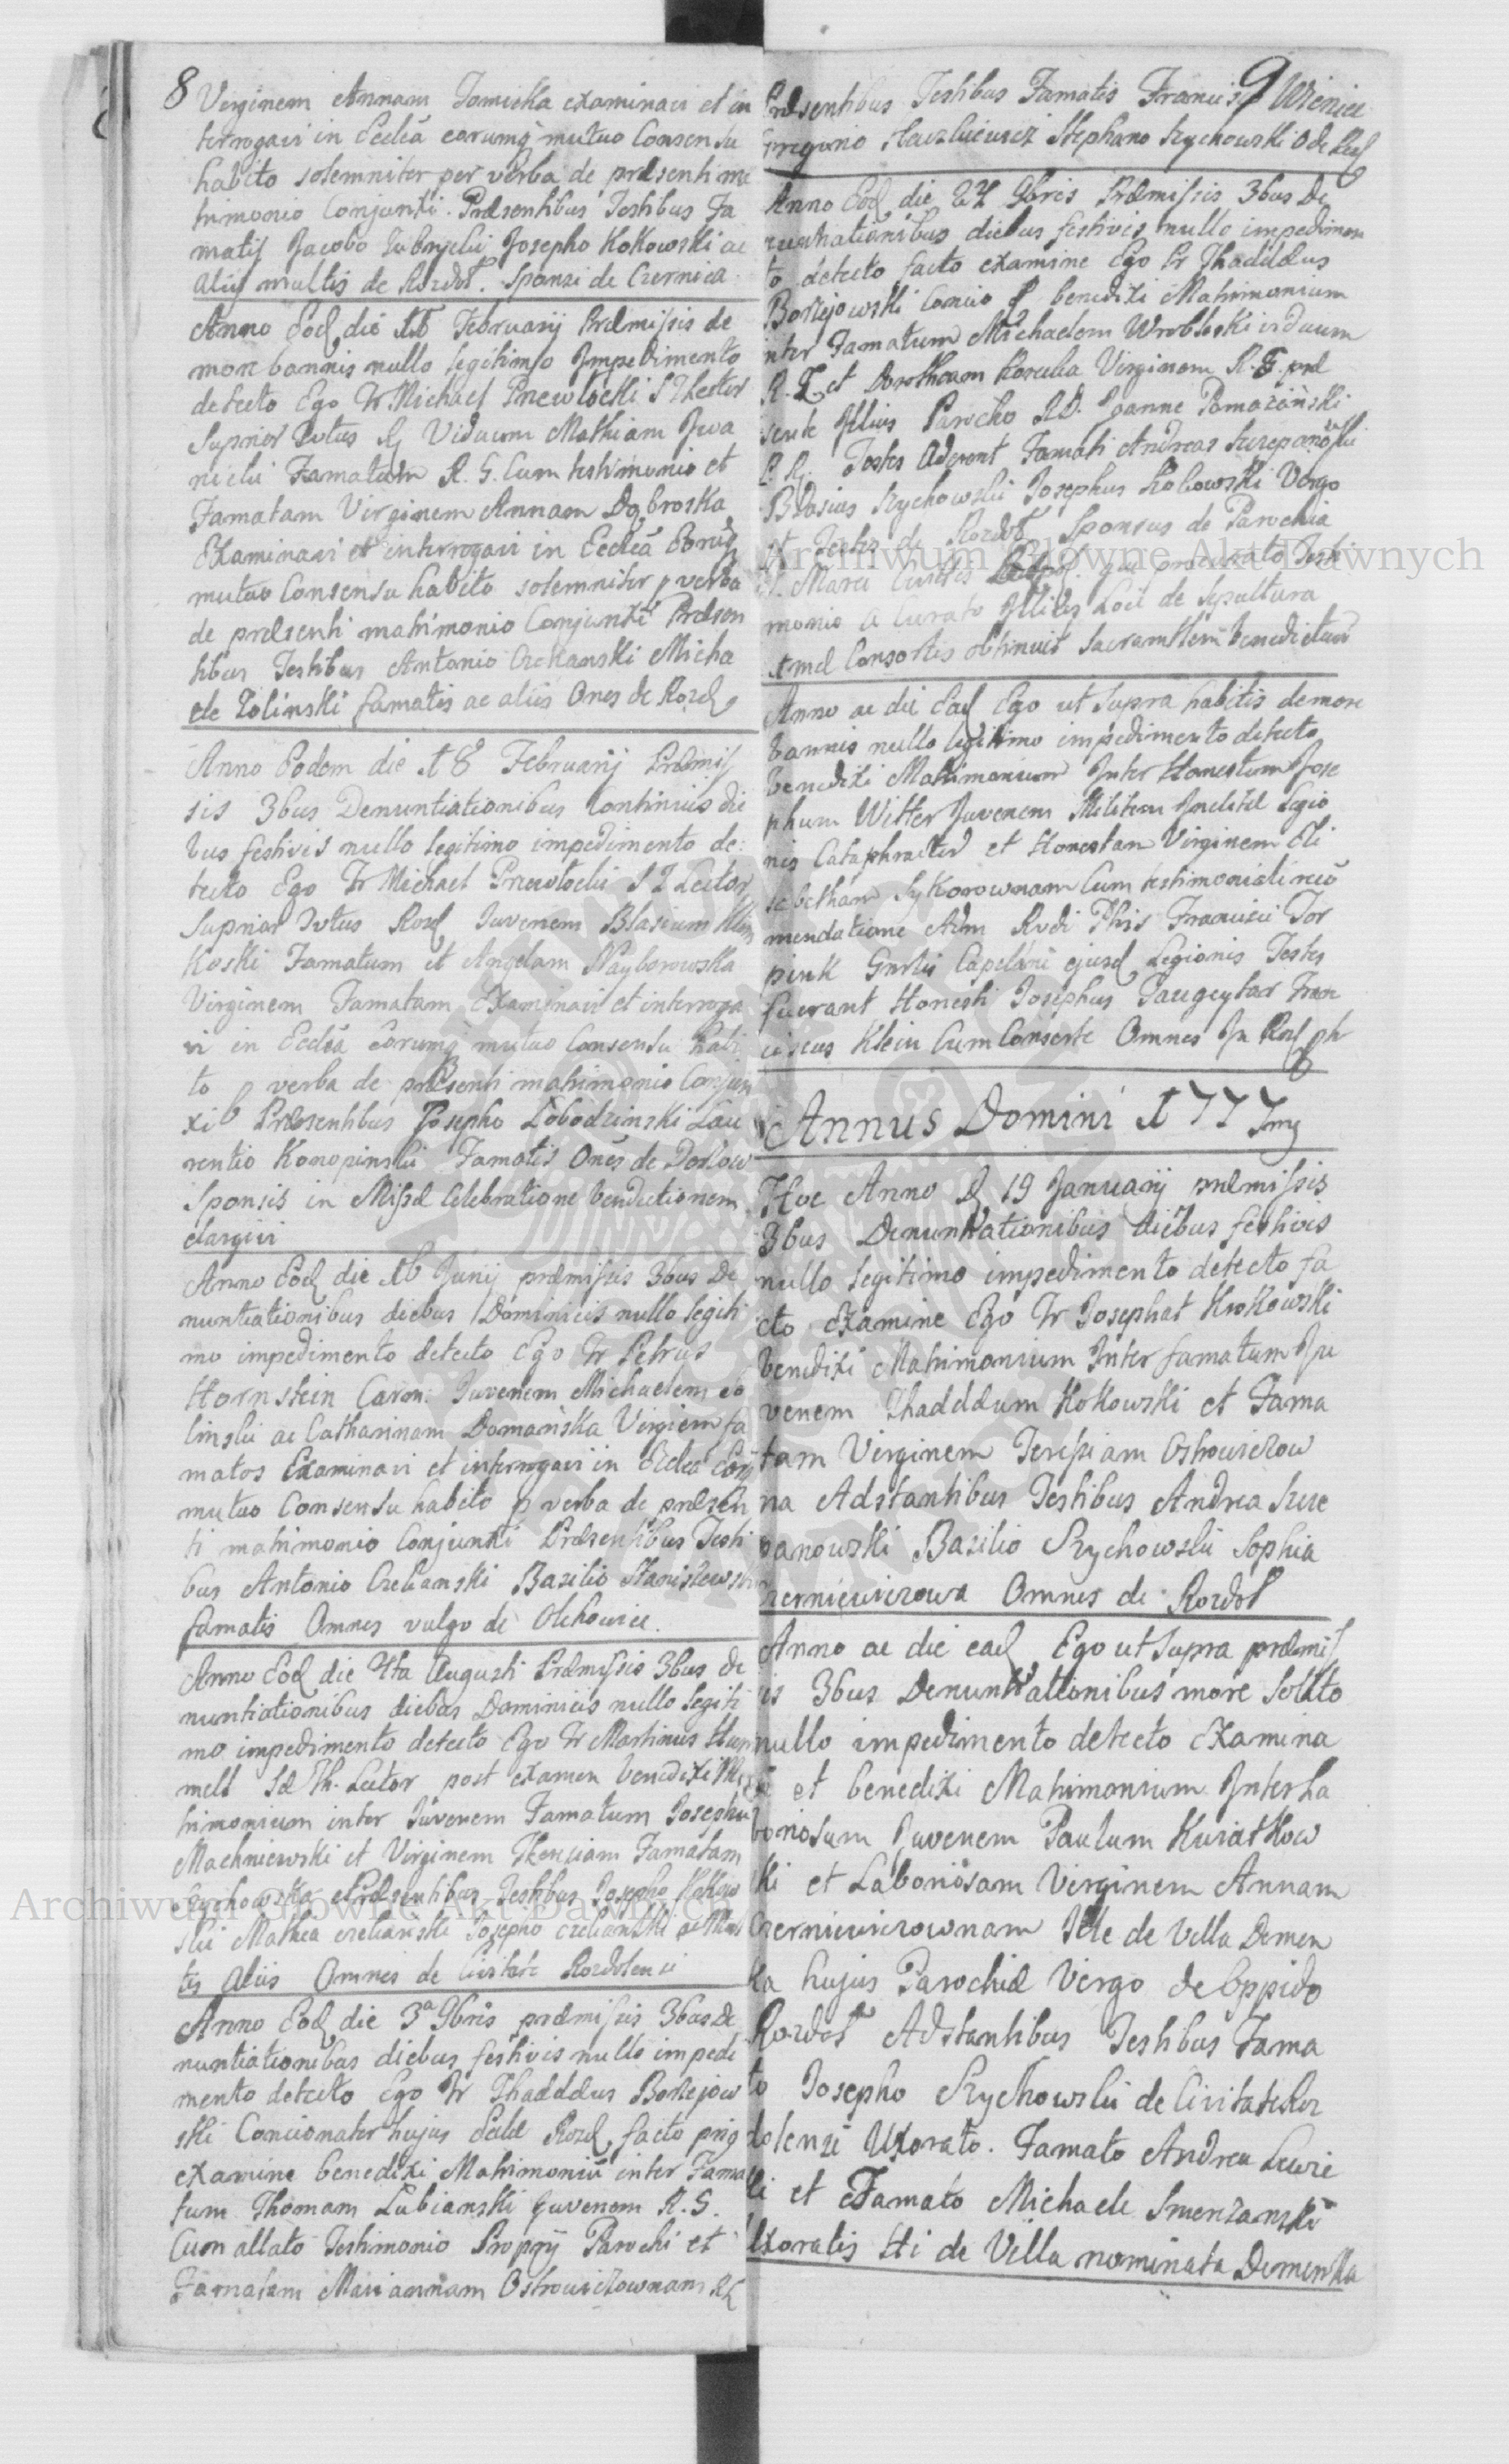 8
Virginem Annam Tomicka examinavi et in
terrogavi in Eccla eorumq mutuo Consensu
habito solemniter per verba de præsenti ma
trimonio Conjunxi. Præsentibus Testibus Fa
matis Jacobo Josepho Kokowski ac
aliis multis de Rozdoł. Sponsi de Czernica
Anno Eod die 15 Februarij Præmissis de
more bannis nullo legitimo Impedimento
detecto Ego Fr Michael Przewłocki S T Lector
Suprior Viduum Mathiam Jwa
nicki Famatum R. G. Cum testimonio et
Famatam Virginem Annam Dąbroska
Examinavi et interrogavi in Eccla Eorūq
mutuo Consensu habito solemniter p verba
de præsenti matrimonio Conjunxi Præsen
tibus Testibus Antonio Czekanski Micha
ele Zolinski famatis ac aliis Ones de Rozd
Anno Eodem die 18 Februarij Præmis
sis 3bus Denuntiationibus Continuis die
bus festivis nullo legitimo impedimento de:
tecto Ego Fr Michael Przewłocki S T Lector
Suprior Rozd Juvenem Blasium Klim
koski Famatum et Angelam Nayborowska
Virginem Famatam Examinavi et interroga
vi in Eccla Eorumq mutuo Consensu habi
to p verba de præsenti matrimonio Conjun
xi Præsentibus Josepho Łobodzinski Lau
rentio Konopinski Famatis Ones de
Sponsis in Missæ Celebratione benedictionem
elargivi
Anno Eod die 16 Junij præmissis 3bus De
nuntiationibus diebus Dominicis nullo legiti
mo impedimento detecto Ego Fr Petrus
Hornstein Juvenem Michaelem Zo
linski ac Catharinam Domańska Virginem fa
matos Examinavi et interrogavi in Eccla Eorq
mutuo Consensu habito p verba de præsen
ti matrimonio Conjunxi Præsentibus Testi
bus Antonio Czekanski Basilio Stanisłewski
famatis Omnes vulgo de Olchowice.
Anno Eod die 4ta Augusti Præmissis 3bus de
nuntiationibus diebus Dominicis nullo legiti
mo impedimento detecto Ego Fr Martinus
Sæ Th. Lector post examen benedixi Ma
trimonium inter Juvenem Famatum Josephu
Machniewski et Virginem Theresiam Famatam
Rychowska Præsentibus Testibus Josepho Kokow
ski Mathia Czekanski Josepho Czekanski ac Mul
tis aliis Omnes de Civitate Rozdolensi
Anno Eod die 3a 9bris præmissis 3bus De
nuntiationibus diebus festivis nullo impedi
mento detecto Ego Fr Thaddæus Borzejow
ski Concionator hujus Eccle Rozd facto
examine benedixi Matrimoniū inter Fama
tum Thomam Łubianski Juvenem R. G.
Cum allato Testimonio Proprij Parochi et
Famatam Mariannam Ostrowiczownam
9
Præsentibus Testibus Famatis Francisco
Gregorio Stephano Rychowski O de Rozd
Anno Eod die 24 9bris Præmissis 3bus De
nuntiationibus diebus festivis nullo impedimen
to detecto facto examine Ego Fr Thaddæus
Borzejowski benedixi Matrimonium
inter Famatum Michaelem Wrobleski viduum
R. G. et Dorotheam Virginem R. G. præ
sente Illius Parocho RD. Joanne Pomazański
Testes Aderant Famati Andreas Szczepanowski
Blasius Rychowski Josephus Kokowski Virgo
et Testes de Rozdoł Sponsus de Parochia
S. Marci Civitis qui procurato Testi
monio a Curato Illius Loci de Sepultura
imæ Consortis obtinuit Benedictum
Anno ac die Ead Ego ut supra habitis demore
bannis nullo legitimo impedimento detecto
benedixi Matrimonium Inter Honestum Jose
phum Witter Juvenem Militem Inclitæ Legio
nis Cataphractæ et Honestam Virginem Eli
sabetham Sykorownam Cum testimoniali recō
mendatione Adm Rvdi Ptris Francisci Tor
Capelani ejusd Legionis Testes
fuerant Honesti Josephus Fran
ciscus Klein Cum Consorte Omnes In Rozd
Annus Domini 1777mg
Hoc Anno D 19 Januarij præmissis
3bus Denuntiationibus diebus festivis
nullo legitimo impedimento detecto fa
cto Examine Ego Fr Josephat Krokowski
benedixi Matrimonium Inter famatum Ju
venem Thaddæum Kokowski et Fama
tam Virginem Teresiam Ostrowiczow
na Adstantibus Testibus Andrea Szcze
panowski Basilio Rychowski Sophia
Czerniewiczowa Omnes de Rozdoł
Anno ac die ead Ego ut Supra præmis
is 3bus Denuntiationibus more Solito
nullo impedimento detecto Examina
vi et benedixi Matrimonium Inter La
boriosum Juvenem Paulum Kwiatkow
ski et Laboriosam Virginem Annam
Czerniewiczownam Ille de Villa Demen
ka hujus Parochiæ Virgo de Oppido
Rozdoł Adstantibus Testibus Fama
to Josepho Rychowski de Civitate Roz
dolensi Uxorato. Famato Andrea
et Famato Michaele Smerzanski
Uxoratis Hi de Villa nominata Demenka
Archiwum Główne Akt Dawnych
Archiwum Główne Akt Dawnych